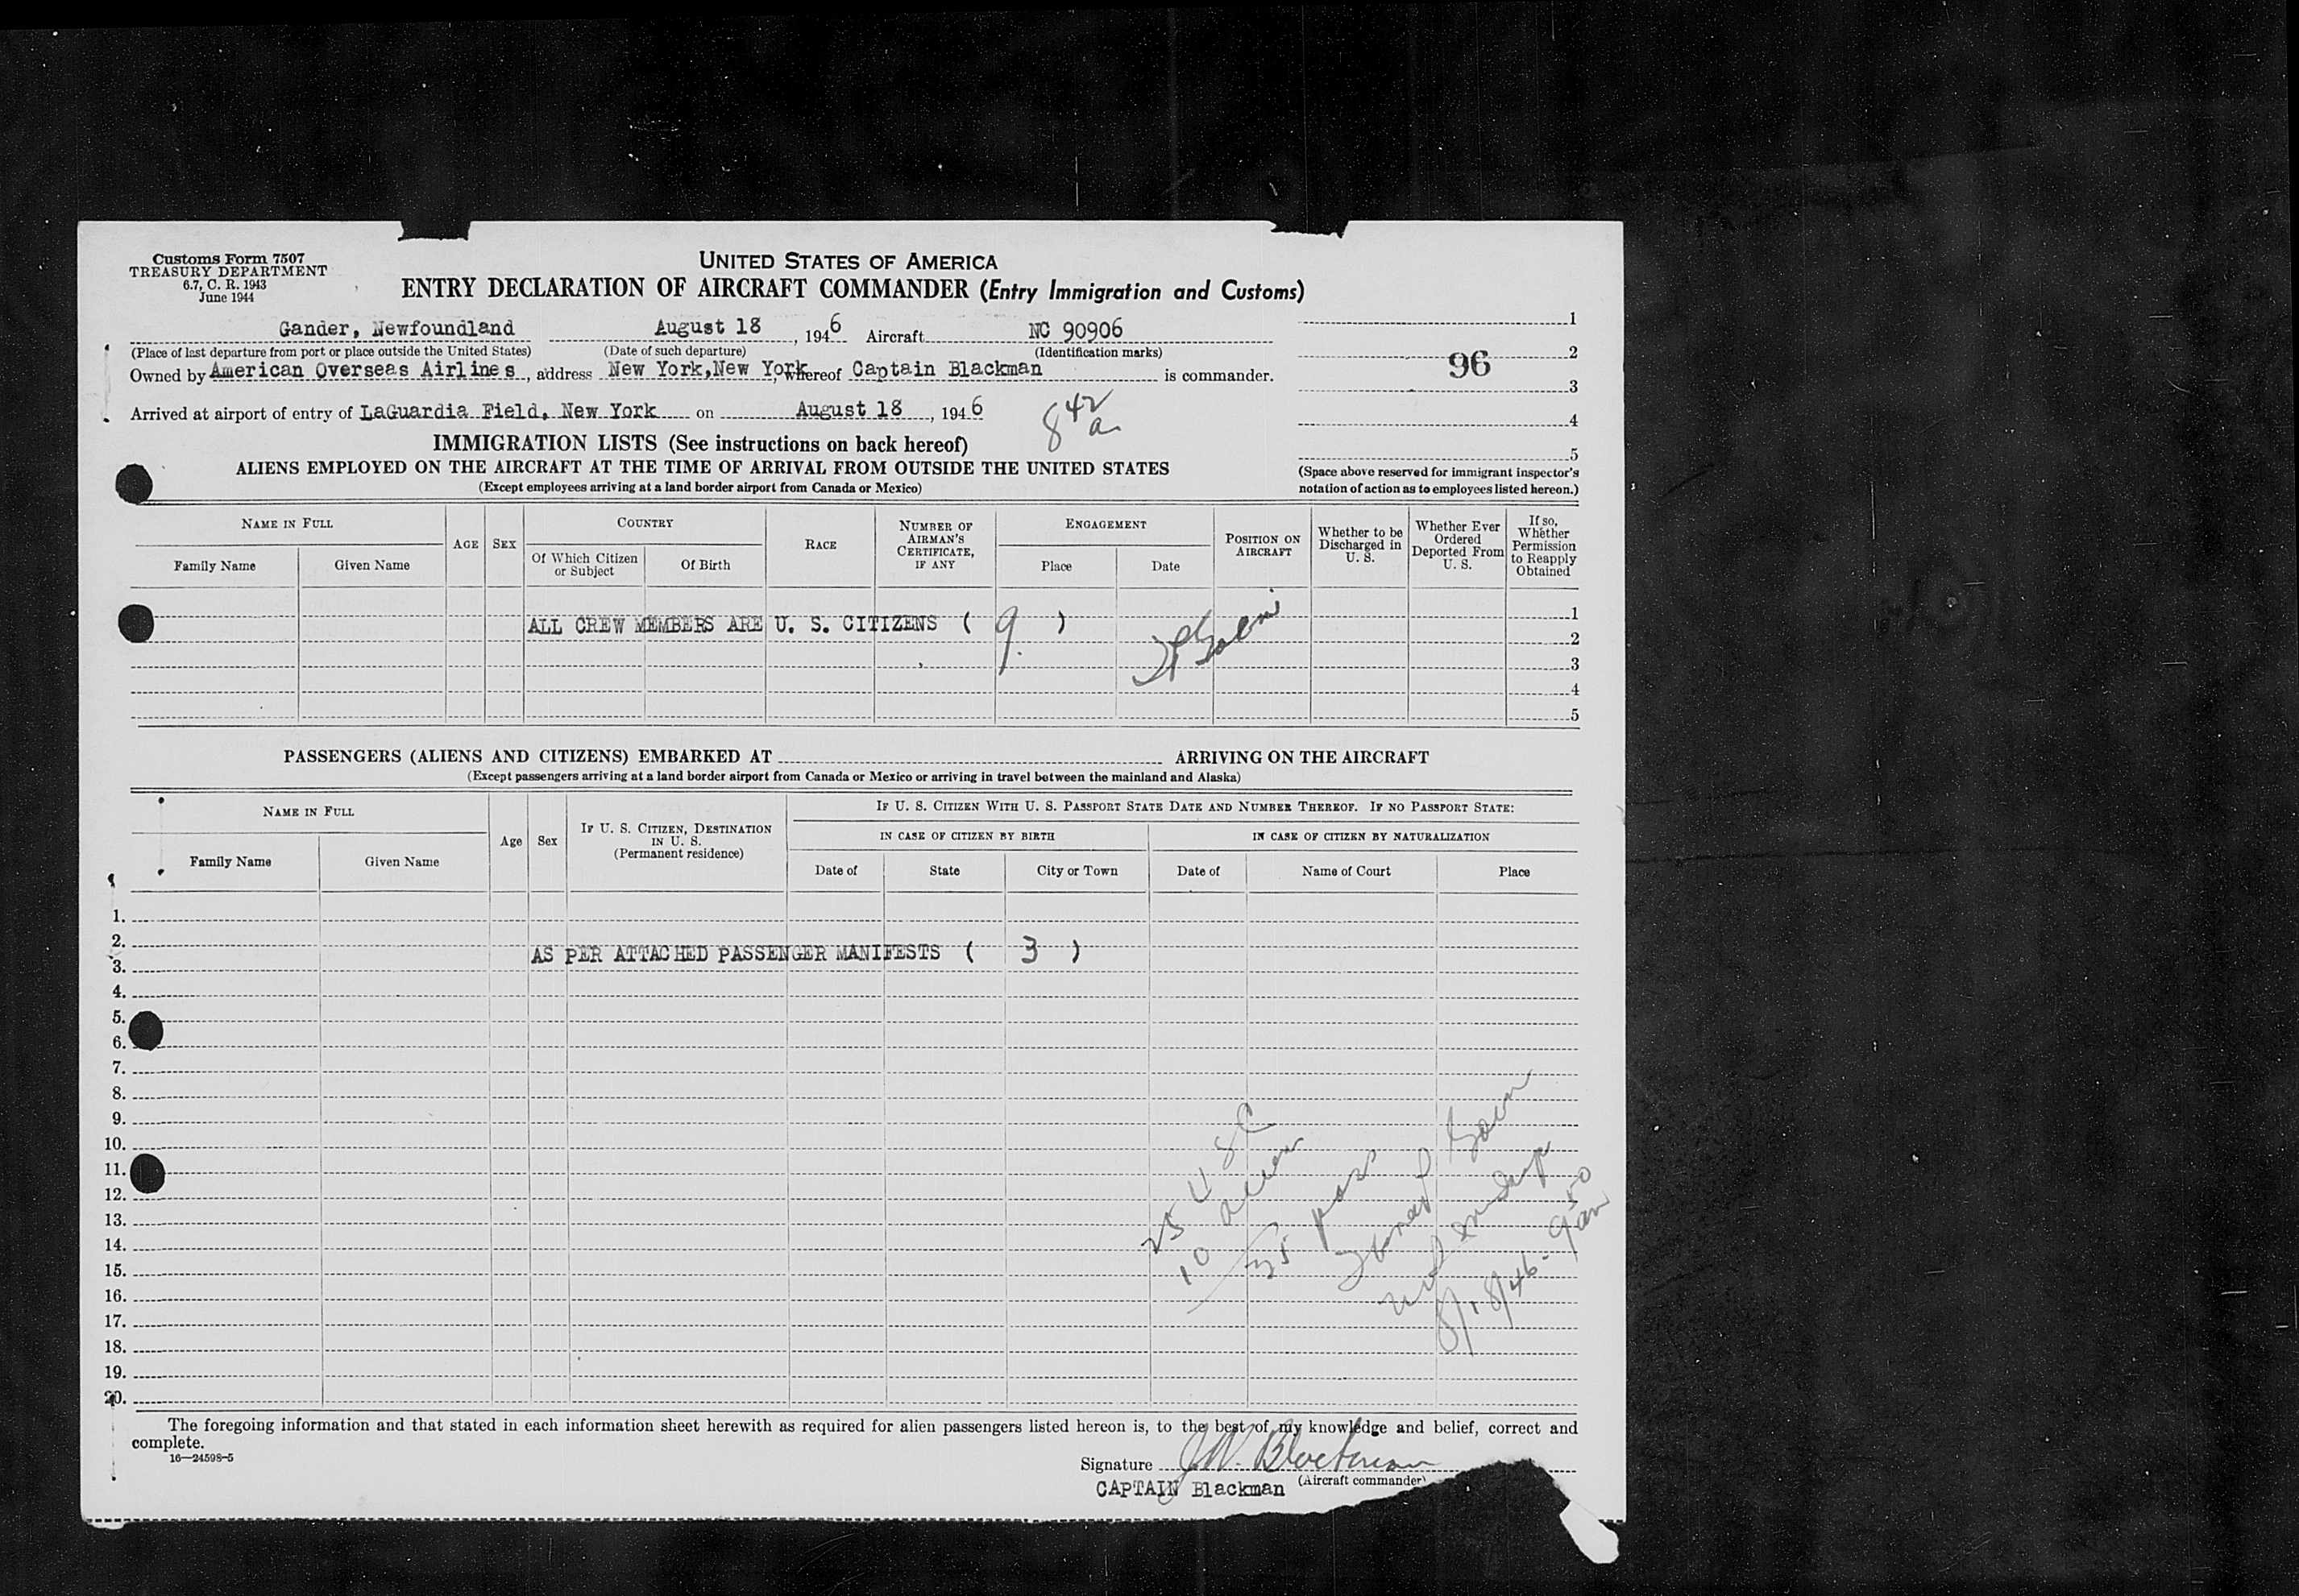 Customs Form 7507
TREASURY DEPARTMENT
6.7, C. R. 1943
June 1944
UNITED STATES OF AMERICA
ENTRY DECLARATION OF AIRCRAFT COMMANDER (Entry Immigration and Customs)
Gander, Newfoundland August 18, 1946 Aircraft NC 90906
(Place of last departure from port or place outside the United States) (Date of such departure) (Identification marks)
Owned by American Overseas Airlines, address New York, New York, whereof Captain Blackman is commander.
Arrived at airport of entry of LaGuardia Field, New York on August 18, 1946
8 42 a
1
2
96
3
4
5
(Space above reserved for immigrant inspector's
notation of action as to employees listed hereon.)
IMMIGRATION LISTS (See instructions on back hereof)
ALIENS EMPLOYED ON THE AIRCRAFT AT THE TIME OF ARRIVAL FROM OUTSIDE THE UNITED STATES
(Except employees arriving at a land border airport from Canada or Mexico)
NAME IN FULL
Family Name
Given Name
AGE
SEX
COUNTRY
Of Which Citizen
or Subject
Of Birth
RACE
NUMBER OF
AIRMAN'S
CERTIFICATE,
IF ANY
ENGAGEMENT
Place
Date
POSITION ON
AIRCRAFT
Whether to be
Discharged in
U. S.
Whether Ever
Ordered
Deported From
U. S.
If so,
Whether
Permission
to Reapply
Obtained
1
ALL CREW MEMBERS ARE U. S. CITIZENS ( 9 )
2
3
4
5
PASSENGERS (ALIENS AND CITIZENS) EMBARKED AT ARRIVING ON THE AIRCRAFT
(Except passengers arriving at a land border airport from Canada or Mexico or arriving in travel between the mainland and Alaska)
NAME IN FULL
Family Name
Given Name
Age
Sex
IF U. S. CITIZEN, DESTINATION
IN U. S.
(Permanent residence)
IF U. S. CITIZEN WITH U. S. PASSPORT STATE DATE AND NUMBER THEREOF. IF NO PASSPORT STATE:
IN CASE OF CITIZEN BY BIRTH
IN CASE OF CITIZEN BY NATURALIZATION
Date of
State
City or Town
Date of
Name of Court
Place
1.
2.
AS PER ATTACHED PASSENGER MANIFESTS ( 3 )
3.
4.
5.
6.
7.
8.
9.
10.
11.
12.
13.
14.
15.
16.
17.
18.
19.
20.
25 USC
10 alien
35 pass
8/18/46 - 9 50 am
The foregoing information and that stated in each information sheet herewith as required for alien passengers listed hereon is, to the best of my knowledge and belief, correct and
complete.
16—24598-5
Signature J.W. Blackman
(Aircraft commander)
CAPTAIN Blackman